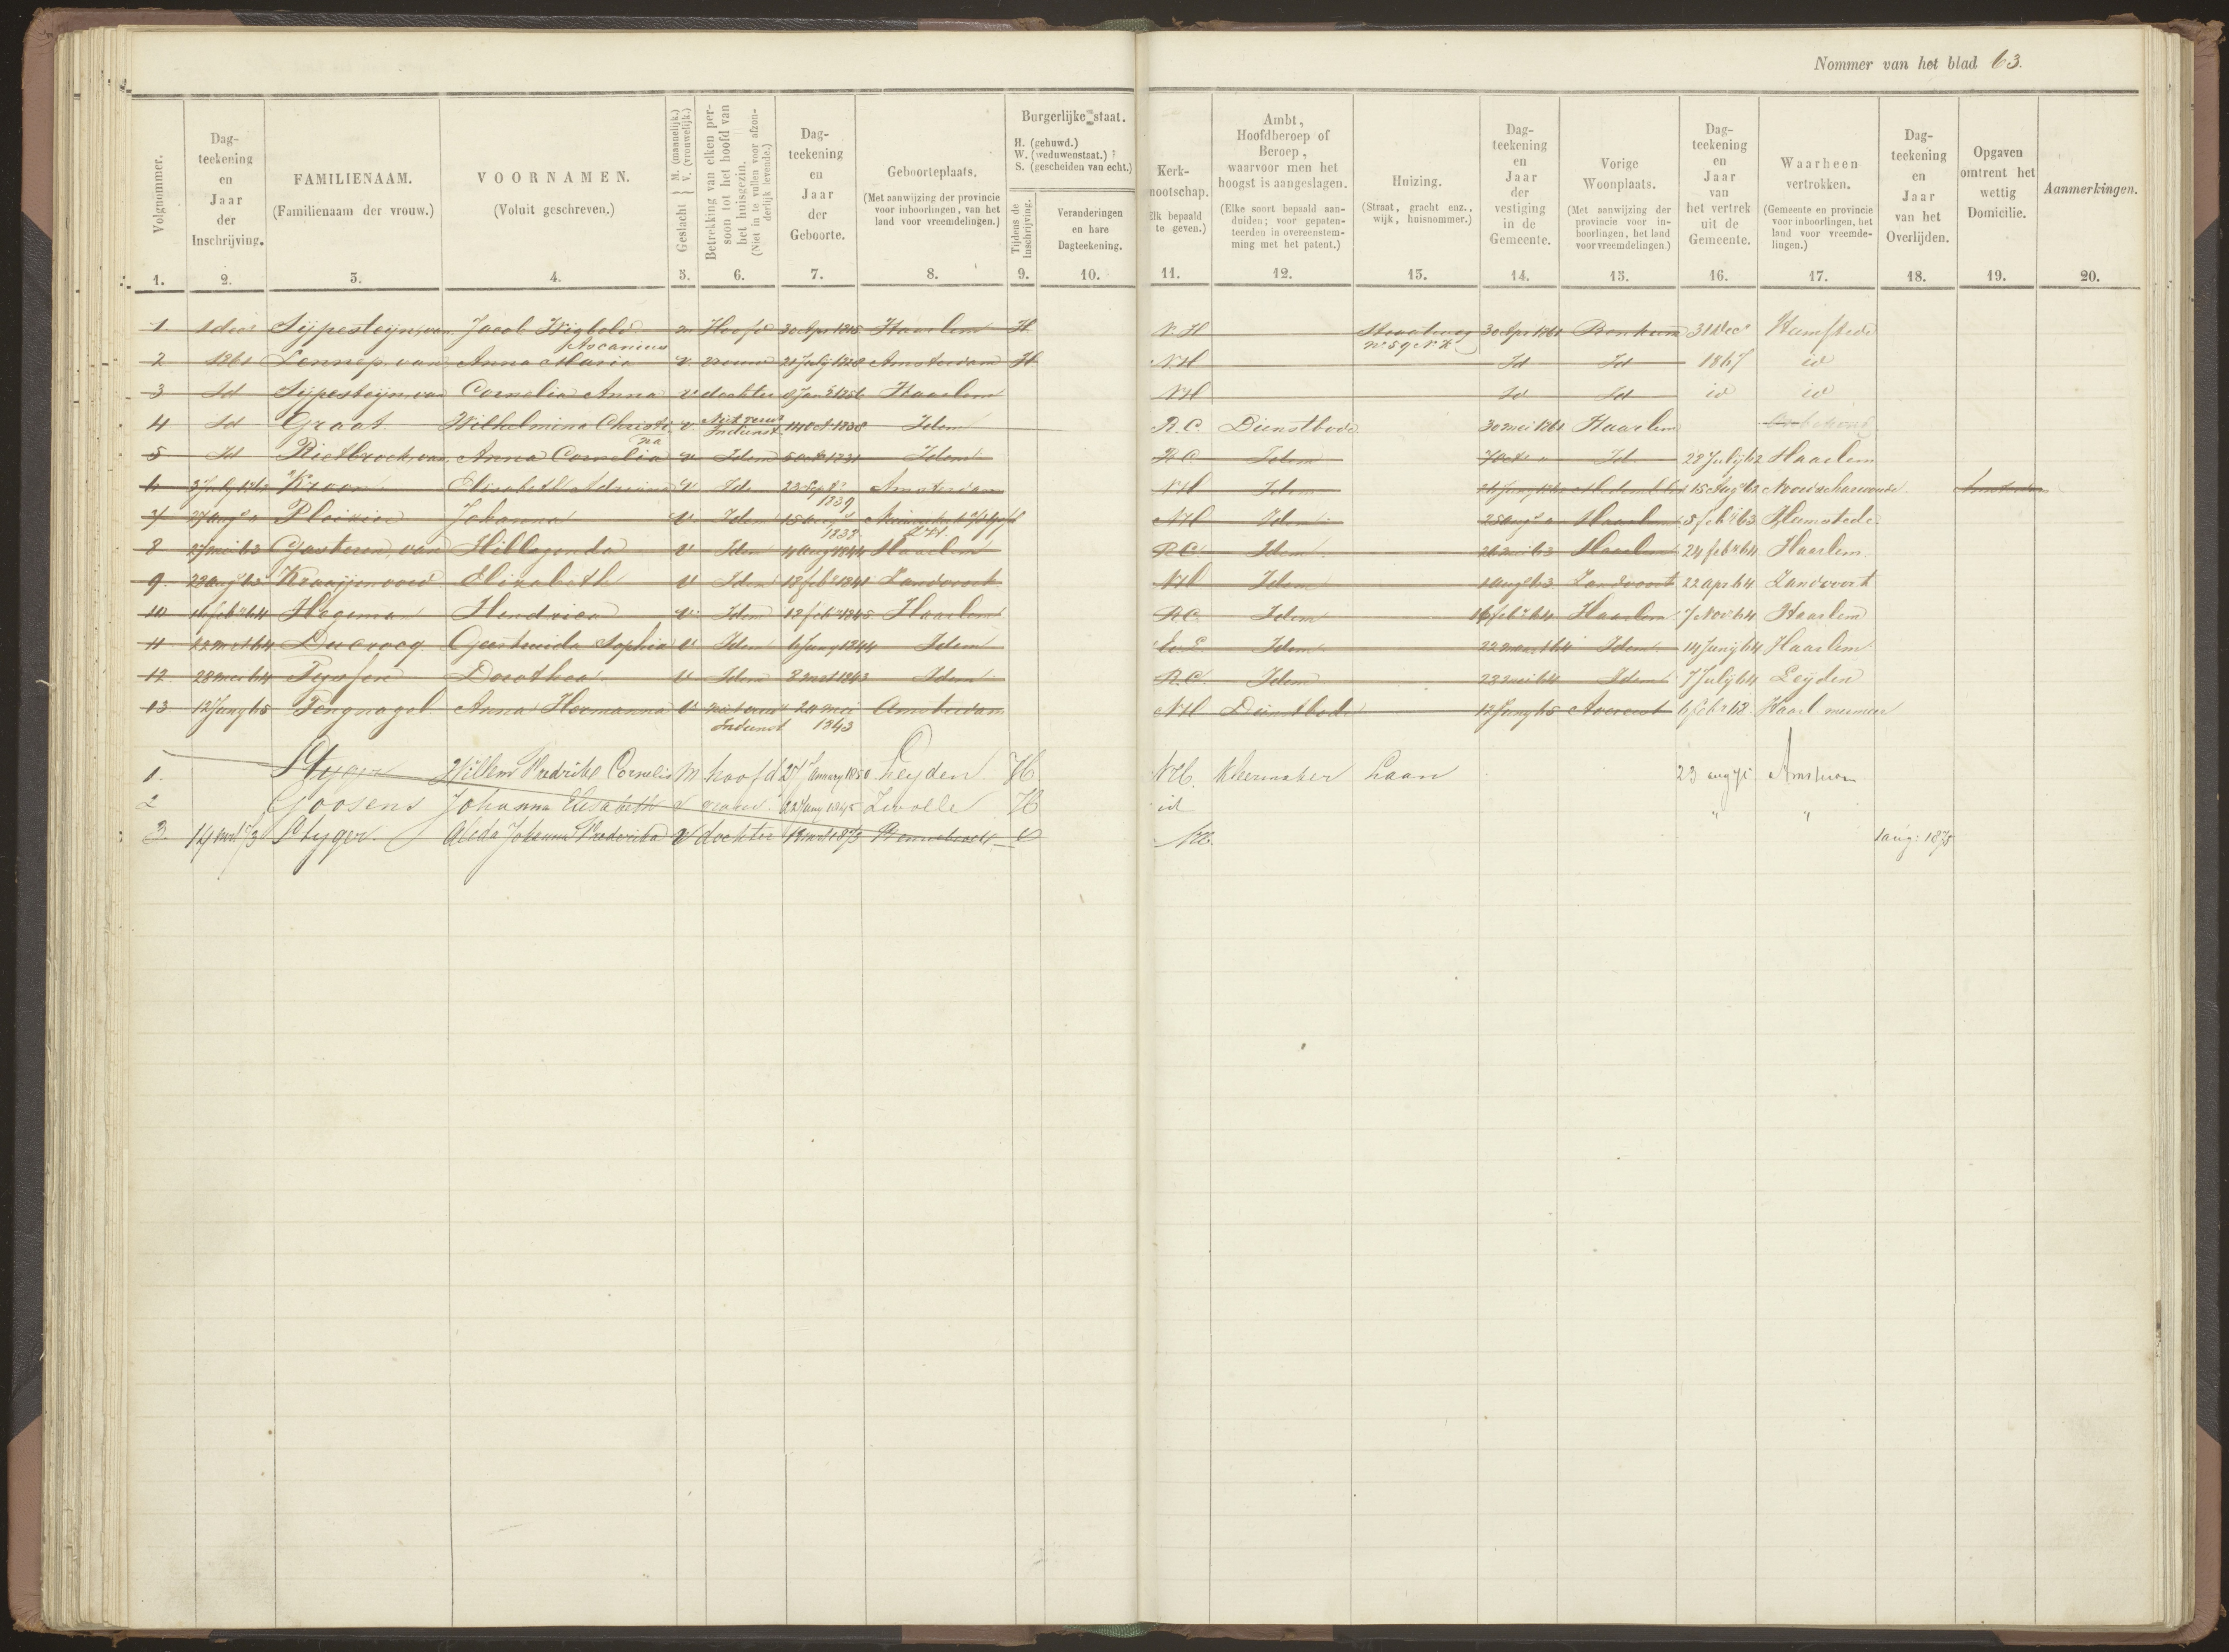 Nommer van het blad 63.
Volgnommer. Dag- teekening en Jaar der Inschrijving. FAMILIENAAM. (Familienaam der vrouw.) VOORNAMEN. (Voluit geschreven.) Geslacht M. (mannelijk.) V. (vrouwelijk.) Betrekking van elken per- soon tot het hoofd van het huisgezin. (Niet in te vullen voor afzon- derlijk levende.) Dag- teekening en Jaar der Geboorte. Geboorteplaats. (Met aanwijzing der provincie voor inboorlingen, van het land voor vreemdelingen.) Burgerlijke staat. H. (gehuwd.) W. (weduwenstaat.) S. (gescheiden van echt.) Tijdens de Inschrijving. Veranderingen en hare Dagteekening.
Kerk- nootschap. Elk bepaald te geven.) Ambt, Hoofdberoep of Beroep, waarvoor men het hoogst is aangeslagen. (Elke soort bepaald aan- duiden; voor gepaten- teerden in overeenstem- ming met het patent.) Huizing. (Straat, gracht enz., wijk, huisnommer.) Dag- teekening en Jaar der vestiging in de Gemeente. Vorige Woonplaats. (Met aanwijzing der provincie voor in- boorlingen, het land voor vreemdelingen.) Dag- teekening en Jaar van het vertrek uit de Gemeente. Waarheen vertrokken. (Gemeente en provincie voor inboorlingen, het land voor vreemde- lingen.) Dag- teekening en Jaar van het Overlijden. Opgaven omtrent het wettig Domicilie. Aanmerkingen.
1. 2. 3. 4. 5. 6. 7. 8. 9. 10. 11. 12. 13. 14. 15. 16. 17. 18. 19. 20.
1 1 decr Sijpesteyn, van Jacob Wigbold m Hoofd 30 Apr 1815 Haarlem H N.H Straatweg 30 Apr 1861 31 Decr Heemstede
Ascanius No 59
2 1861 Lennep van Anna Maria v. vrouw 21 July 1828 Amsterdam H NH Id Id 1867 id
3 Id Sijpesteyn van Cornelia Anna v dochter Haarlem NH Id Id id id
4 Id Graat Wilhelmina Christi v. Niet verw. 14 Oct 1838 Idem R.C. Dienstbode 30 mei 1861 Haarlem
na Indienst
5 Id Rietbroek, van Anna Cornelia v Idem Idem R.C. Idem Id. 28 July 62 Haarlem
6 Kroon Elisabeth Adriana v Idem 23 Sept Amsterdam NH Idem 15 Aug 62 Noordscharwoude
1839
7 Johanna v. Idem NH Idem 25 aug Haarlem 5 feb 63 Heemstede
1838
8 27 mei 63 Gasteren, van Hillegonda v Idem 4 aug 1844 Haarlem RC Idem Haarlem 24 feb 64 Haarlem
9. Kraaijenoord Elisabeth v Idem 18 feb 1841 Zandvoort NH Idem 1 aug 63 Zandvoort 22 apr 64 Zandvoort
10 16 feb 64 Hageman Hendrica v. Idem 12 feb 1845 Haarlem RC. Idem 16 feb 64 Haarlem 7 Nov 64 Haarlem
11 22 mrt 64 Ducrocq Geertruida Sophia v Idem 6 Juny 1844 Idem Idem 22 maart 64 Idem 14 Junij 64 Haarlem
12 28 mei 64 Dorothea v Idem 8 mrt 1843 Idem R.C. Idem 28 mei 64 Idem 7 July 64 Leyden
13 12 Juny 65 Tengnagel Anna Hermanna v niet verw 20 mei Amsterdam NH Dienstbode 12 Juny 65 Avereest 6 feb 68 Haarl mermeer
Indienst 1843
1. Styger Willem Fredrikl Cornelis m hoofd 27 January 1850 Leyden H. NH. Kleermaker Laan 23 aug 75
2 Goosens Johanna Elisabeth v vrouw 22 Juny 1845 Zwolle H id " "
3. 14 mrt 73 Styger Aleda Johanna Frederika v dochter 13 mrt 1873 Bennebroek NH. 1 aug: 1875